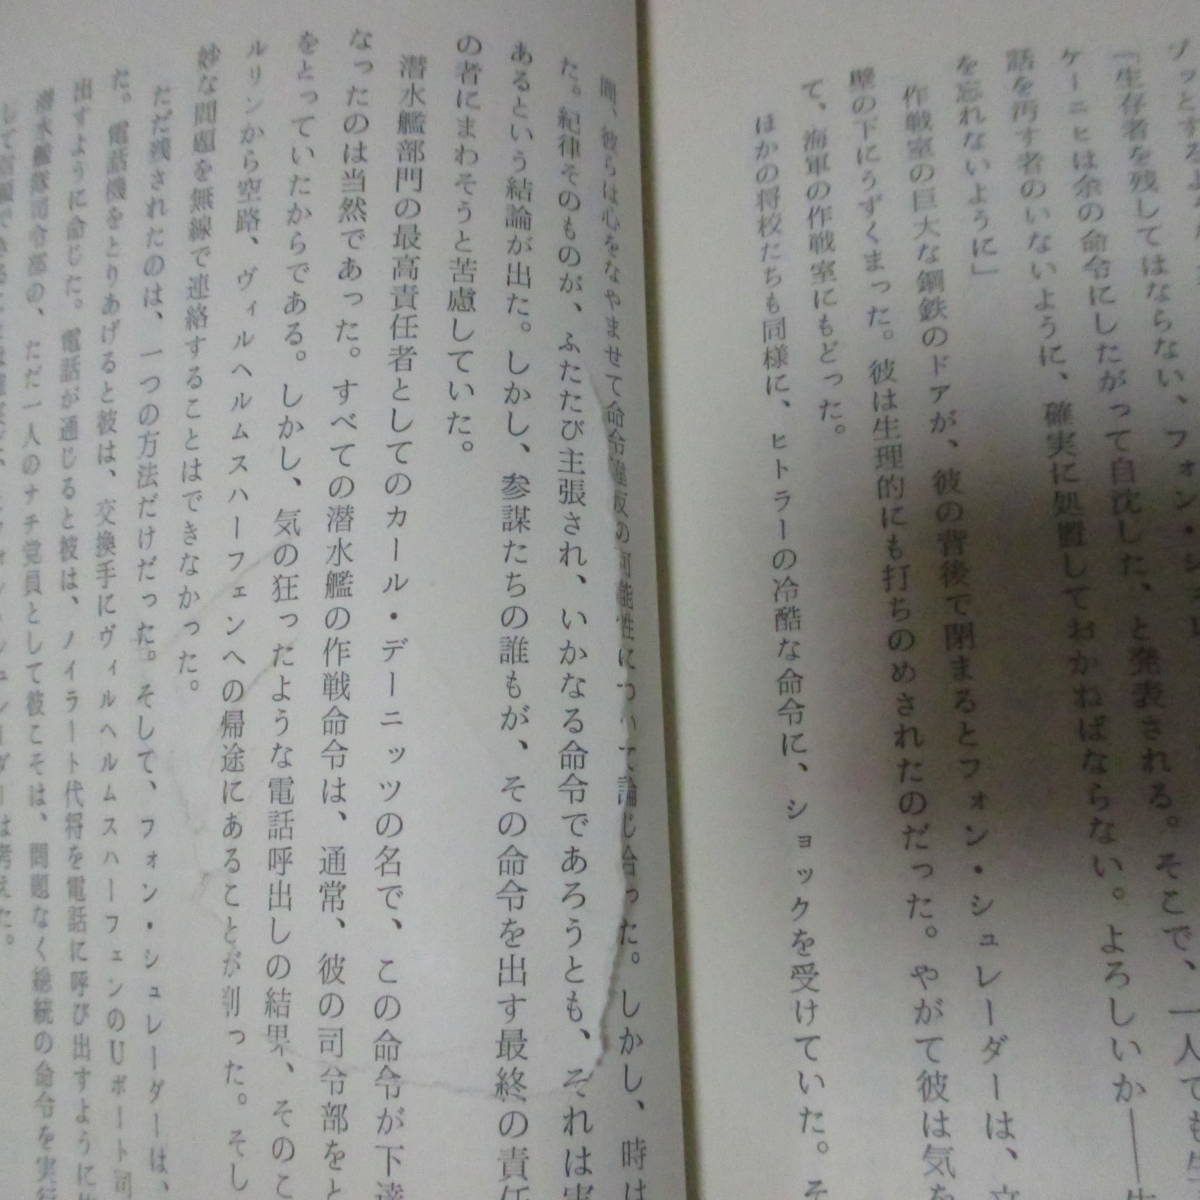 「生存者を残してはならない、フォン・シュレ
られ、そこで、一人でも生
ケーニヒは余の命令にしたがって自沈した、と発表される。そこで、
話を汚す者のいないように、確実に処置しておかねばならない。よろしいか――生
を忘れないように」
作戦室の巨大な鋼鉄のドアが、彼の背後で閉まるとフォン・シュレーダーは、立
壁の下にうずくまった。彼は生理的にも打ちのめされたのだった。やがて彼は気を
て、海軍の作戦室にもどった。
ほかの将校たちも同様に、ヒトラーの冷酷な命令に、ショックを受けていた。そ
間、彼らは心をなやませて命令違反の可能性について論じ合った。しかし、時は
た。紀律そのものが、ふたたび主張され、いかなる命令であろうとも、それは実
あるという結論が出た。しかし、参謀たちの誰もが、その命令を出す最終の責任
の者にまわそうと苦慮していた。
潜水艦部門の最高責任者としてのカール・デーニッツの名で、この命令が下達
なったのは当然であった。すべての潜水艦の作戦命令は、通常、彼の司令部をと
をとっていたからである。しかし、気の狂ったような電話呼出しの結果、そのこ
ルリンから空路、ヴィルヘルムスハーフェンへの帰途にあることが判った。そし
妙な問題を無線で連絡することはできなかった。
ただ残されたのは、一つの方法だけだった。そして、フォン・シュレーダーは、
た。電話機をとりあげると彼は、交換手にヴィルヘルムスハーフェンのUボート司
出すように命じた。電話が通じると彼は、ノイラート代将を電話に呼び出すように
潜水艦隊司令部の、ただ一人のナチ党員として彼こそは、問題なく総統の命令を実行
フォン・シュレーダーは考えた。